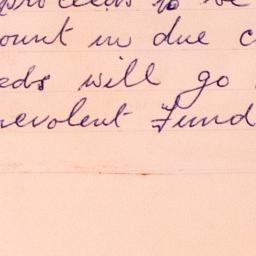 proceeds to be
ount in due c
eds will go
nevolent Fund